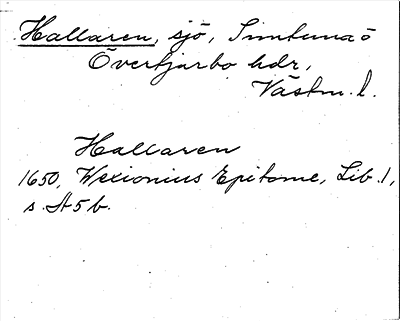 Hallaren, sjö, Simtuna o
Överfjarbo hdr,
Västm. l.
Hallaren
1650, Wexionius Epitome, Lib. 1,
s. A 5 b.